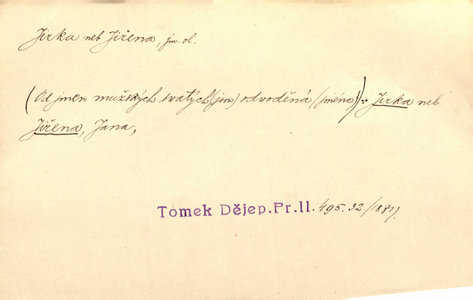 Jirka neb Jiřena, jm. vl.
(Od jmen mužských svatých (jsou) odvozená (jména)): Jirka neb
Jiřena, Jana,
Tomek Dějep.Pr.II. 495.32/1871.